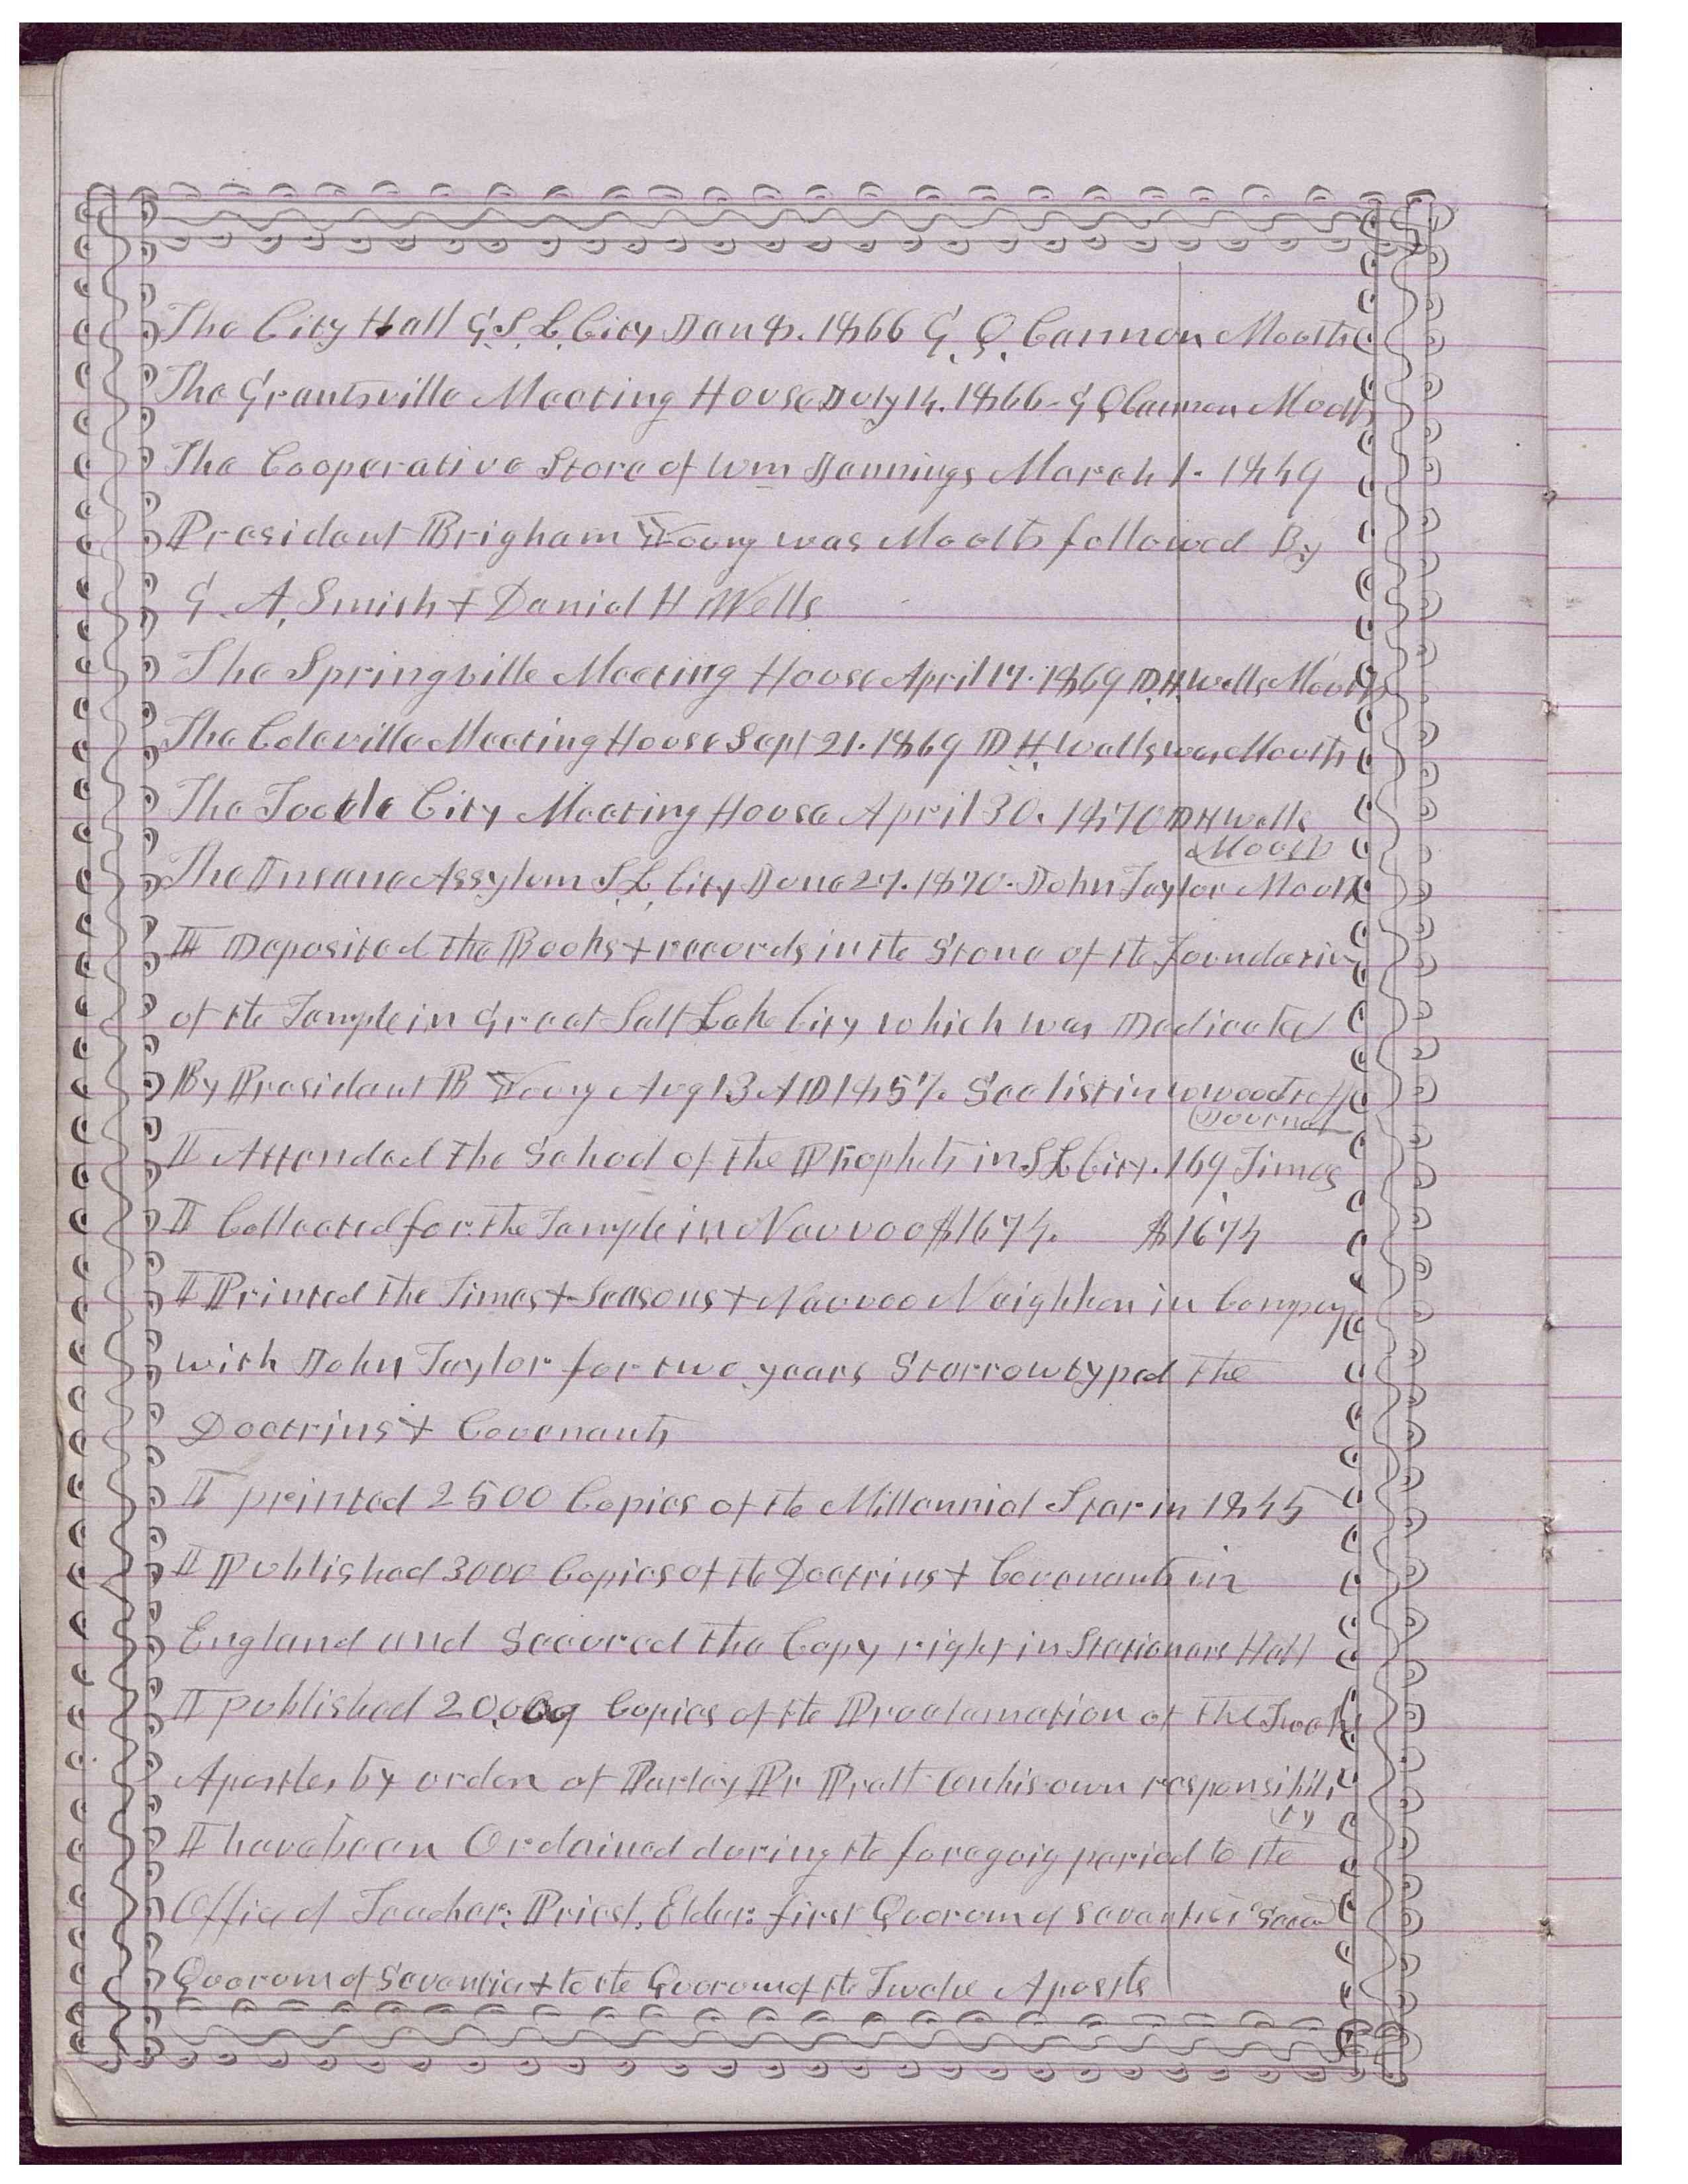 The City Hall G. S. L. City Jan 8. 1866 G. Q. Cannon Mouth
The Grantsville Meeting House July 14. 1866 - G Q Cannon Mouth
The Cooperative Store of Wm Jennings March 1. 1869
President Brigham Young was Mouth followed By
G. A. Smith + Daniel H Wells
The Springville Meeting House April 17. 1869 D. H. Wells Mouth
The Coleville Meeting House Sept 21. 1869 D H. Wells was Mouth
The Tooele City Meeting House April 30. 1870 D H Wells
Mouth
The Insane Assylum S. L. City June 27. 1870. John Taylor Mouth
I Deposited the Books + records in the Stone of the foundation
of the Temple in Great Salt Lake City which was Dedicated
By President B Young Aug 13 AD 1857. See list in W Woodruff
Journal
I Attended the School of the Prophets in S L City. 169 Times
I Collected for the Temple in Nauvoo $1674. $1674
I Printed the Times + Seasons + Nauvoo Neighbor in Compny
with John Taylor for two years Starrowtyped the
Doctrins + Covenants
I printed 2500 Copies of the Millennial Star in 1845
I Published 3000 Copies of the Doctrins + Covenants in
England and Secured the Copy right in Stationers Hall
I published 20,000 Copies of the Proclamation of the Twelve
Apostles by order of Parley Pr Pratt on his own responsibili
ty
I have been Ordained during the foregoig period to the
Office of Teacher: Priest. Elder: first Quorum of Seventies
Quorum of Seventies + to the Quorum of the Twelve Apostls